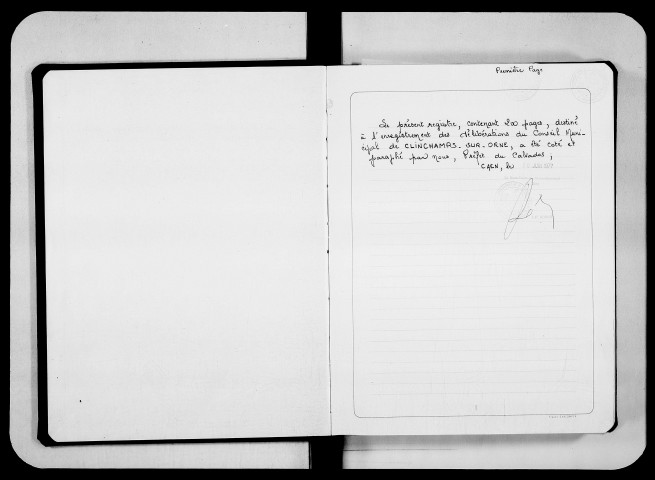 Première Page
Le présent registre, contenant 200 pages, destiné
à l'enregistrement des délibérations du Conseil Muni-
cipal de CLINCHAMPS-SUR-ORNE, a été coté et
paraphé par nous, Préfet du Calvados,
CAEN, le